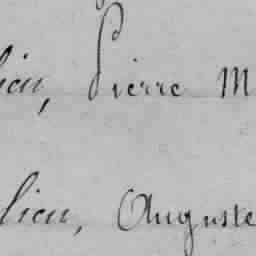 lieu, Pierre M
lieu, Auguste